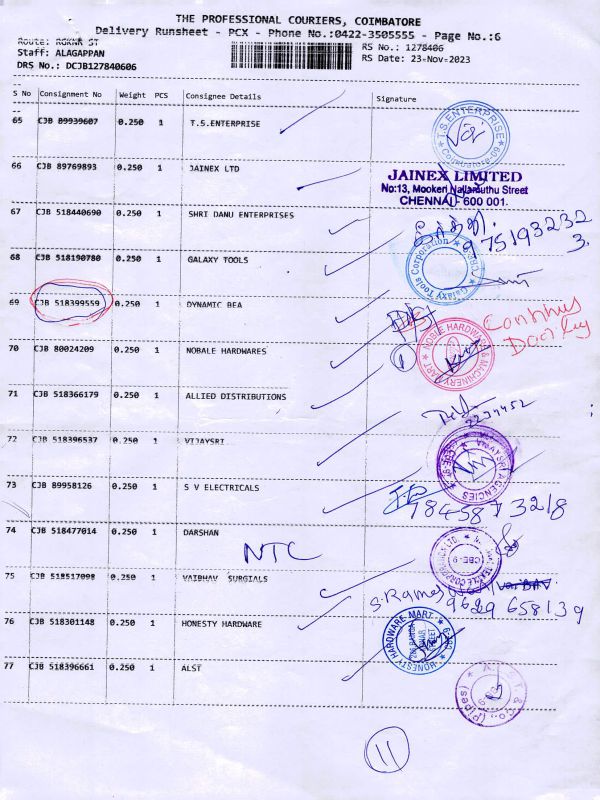 THE PROFESSIONAL COURIERS, COIMBATORE
Delivery Runsheet - PCX - Phone No.:0422-3505555 - Page No.:6
Route: RGKNR ST
Staff: ALAGAPPAN
DRS No.: DCJB127840606
RS No.: 1278406
RS Date: 23-Nov-2023
S No Consignment No Weight PCS Consignee Details Signature
65 CJB 89939607 0.250 1 T.S.ENTERPRISE
T.S.ENTERPRISE
66 CJB 89769893 0.250 1 JAINEX LTD
JAINEX LIMITED
No:13, Mookeri Nallamuthu Street
CHENNAI - 600 001.
67 CJB 518440690 0.250 1 SHRI DANU ENTERPRISES
9751932323.
68 CJB 518190780 0.250 1 GALAXY TOOLS
Galaxy Tools Corporation
69 CJB 518399559 0.250 1 DYNAMIC BEA
70 CJB 80024209 0.250 1 NOBALE HARDWARES
NOBLE HARDWARE & MACHINERY MART
71 CJB 518366179 0.250 1 ALLIED DISTRIBUTIONS
2234452
72 CJB 518396537 0.250 1 VIJAYSRI
VIJAYSRI AGENCIES
73 CJB 89958126 0.250 1 S V ELECTRICALS
7845873218
74 CJB 518477014 0.250 1 DARSHAN
NTC
75 CJB 518517098 0.250 1 VAIBHAV SURGIALS
9629658139
76 CJB 518301148 0.250 1 HONESTY HARDWARE
HONESTY HARDWARE MART
77 CJB 518396661 0.250 1 ALST
11